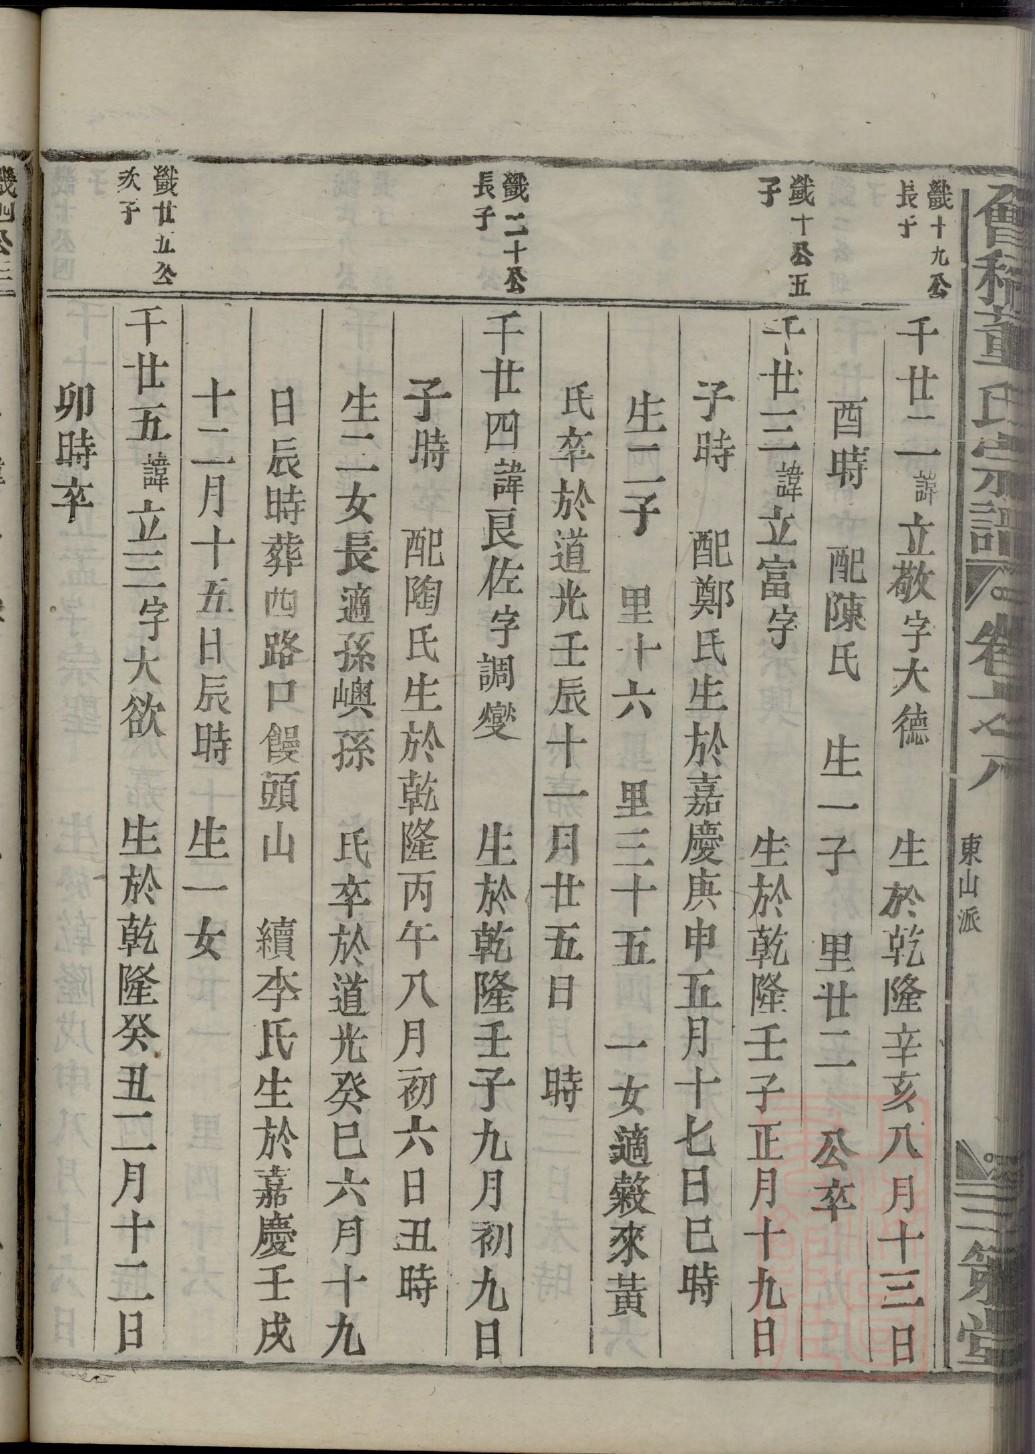 會稽董氏宗譜
卷十七
東山派
三策堂
鑯十九公
長子
千廿二諱立敬字大德 生於乾隆辛亥八月十三日
酉時 配陳氏 生一子 里廿二 公卒
鑯十公五
子
千廿三諱立富字 生於乾隆壬子正月十九日
子時 配鄭氏生於嘉慶庚申五月十七日巳時
生二子 里十六 里三十五 一女適榖來黃
氏卒於道光壬辰十一月廿五日 時
鑯二十公
長子
千廿四諱良佐字調燮 生於乾隆壬子九月初九日
子時 配陶氏生於乾隆丙午八月初六日丑時
生二女長適孫嶼孫 氏卒於道光癸巳六月十九
日辰時葬四路口饅頭山 續李氏生於嘉慶壬戌
十二月十五日辰時 生一女
鑯廿五公
次子
千廿五諱立三字大欲 生於乾隆癸丑二月十二日
卯時卒